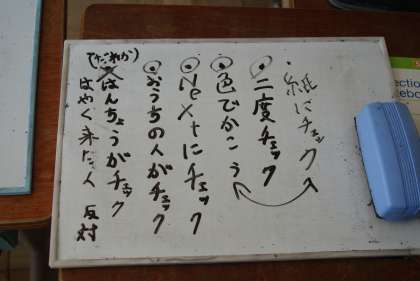 ・紙にチェック
・二度チェック
・色でかこう
・Nextにチェック
・おうちの人がチェック
(だれか)
はんちょうがチェック
はやく来た人 反対